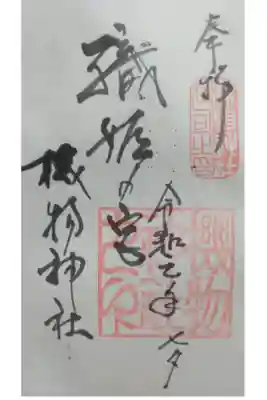 奉拝
令和年 七夕
織姫の宮
機物神社